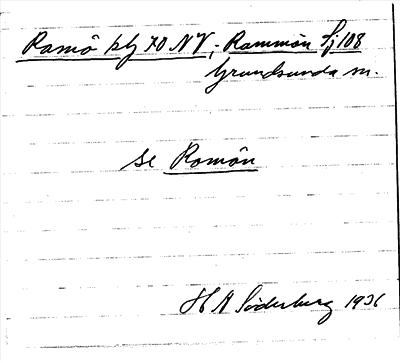 Ramö kbl 70 NV, Rammön Sj 108
Grundsunda sn.
se Romön
H A Söderberg 1936